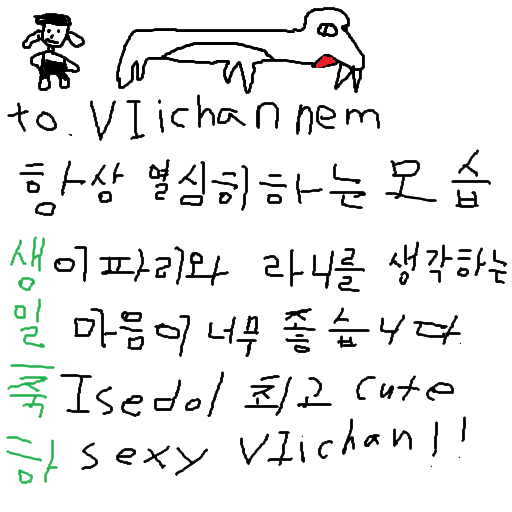 to. VIichan nem
항상 열심히 하는 모습
생 이파리와 라니를 생각하는
일 마음이 너무 좋습니다
축 Isedol 최고 cute
하 sexy VIichan!!